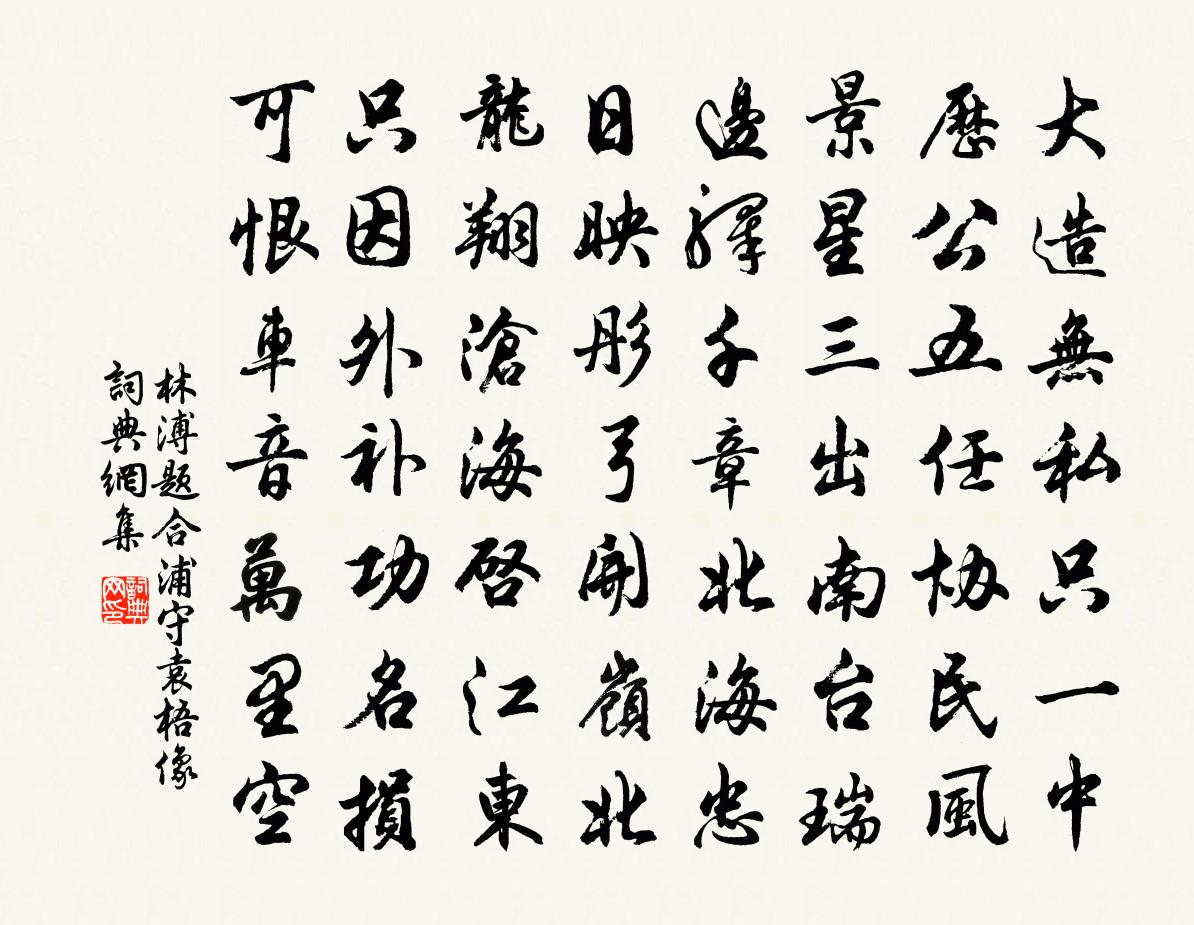 大造無私只一中
歷公五任協民風
景星三出南台瑞
邊驛千章北海忠
日映彤弓開嶺北
龍翔滄海啓江東
只因外补功名損
可恨車音萬里空
林溥題合浦守袁梧像
詞典網集
詞典网印